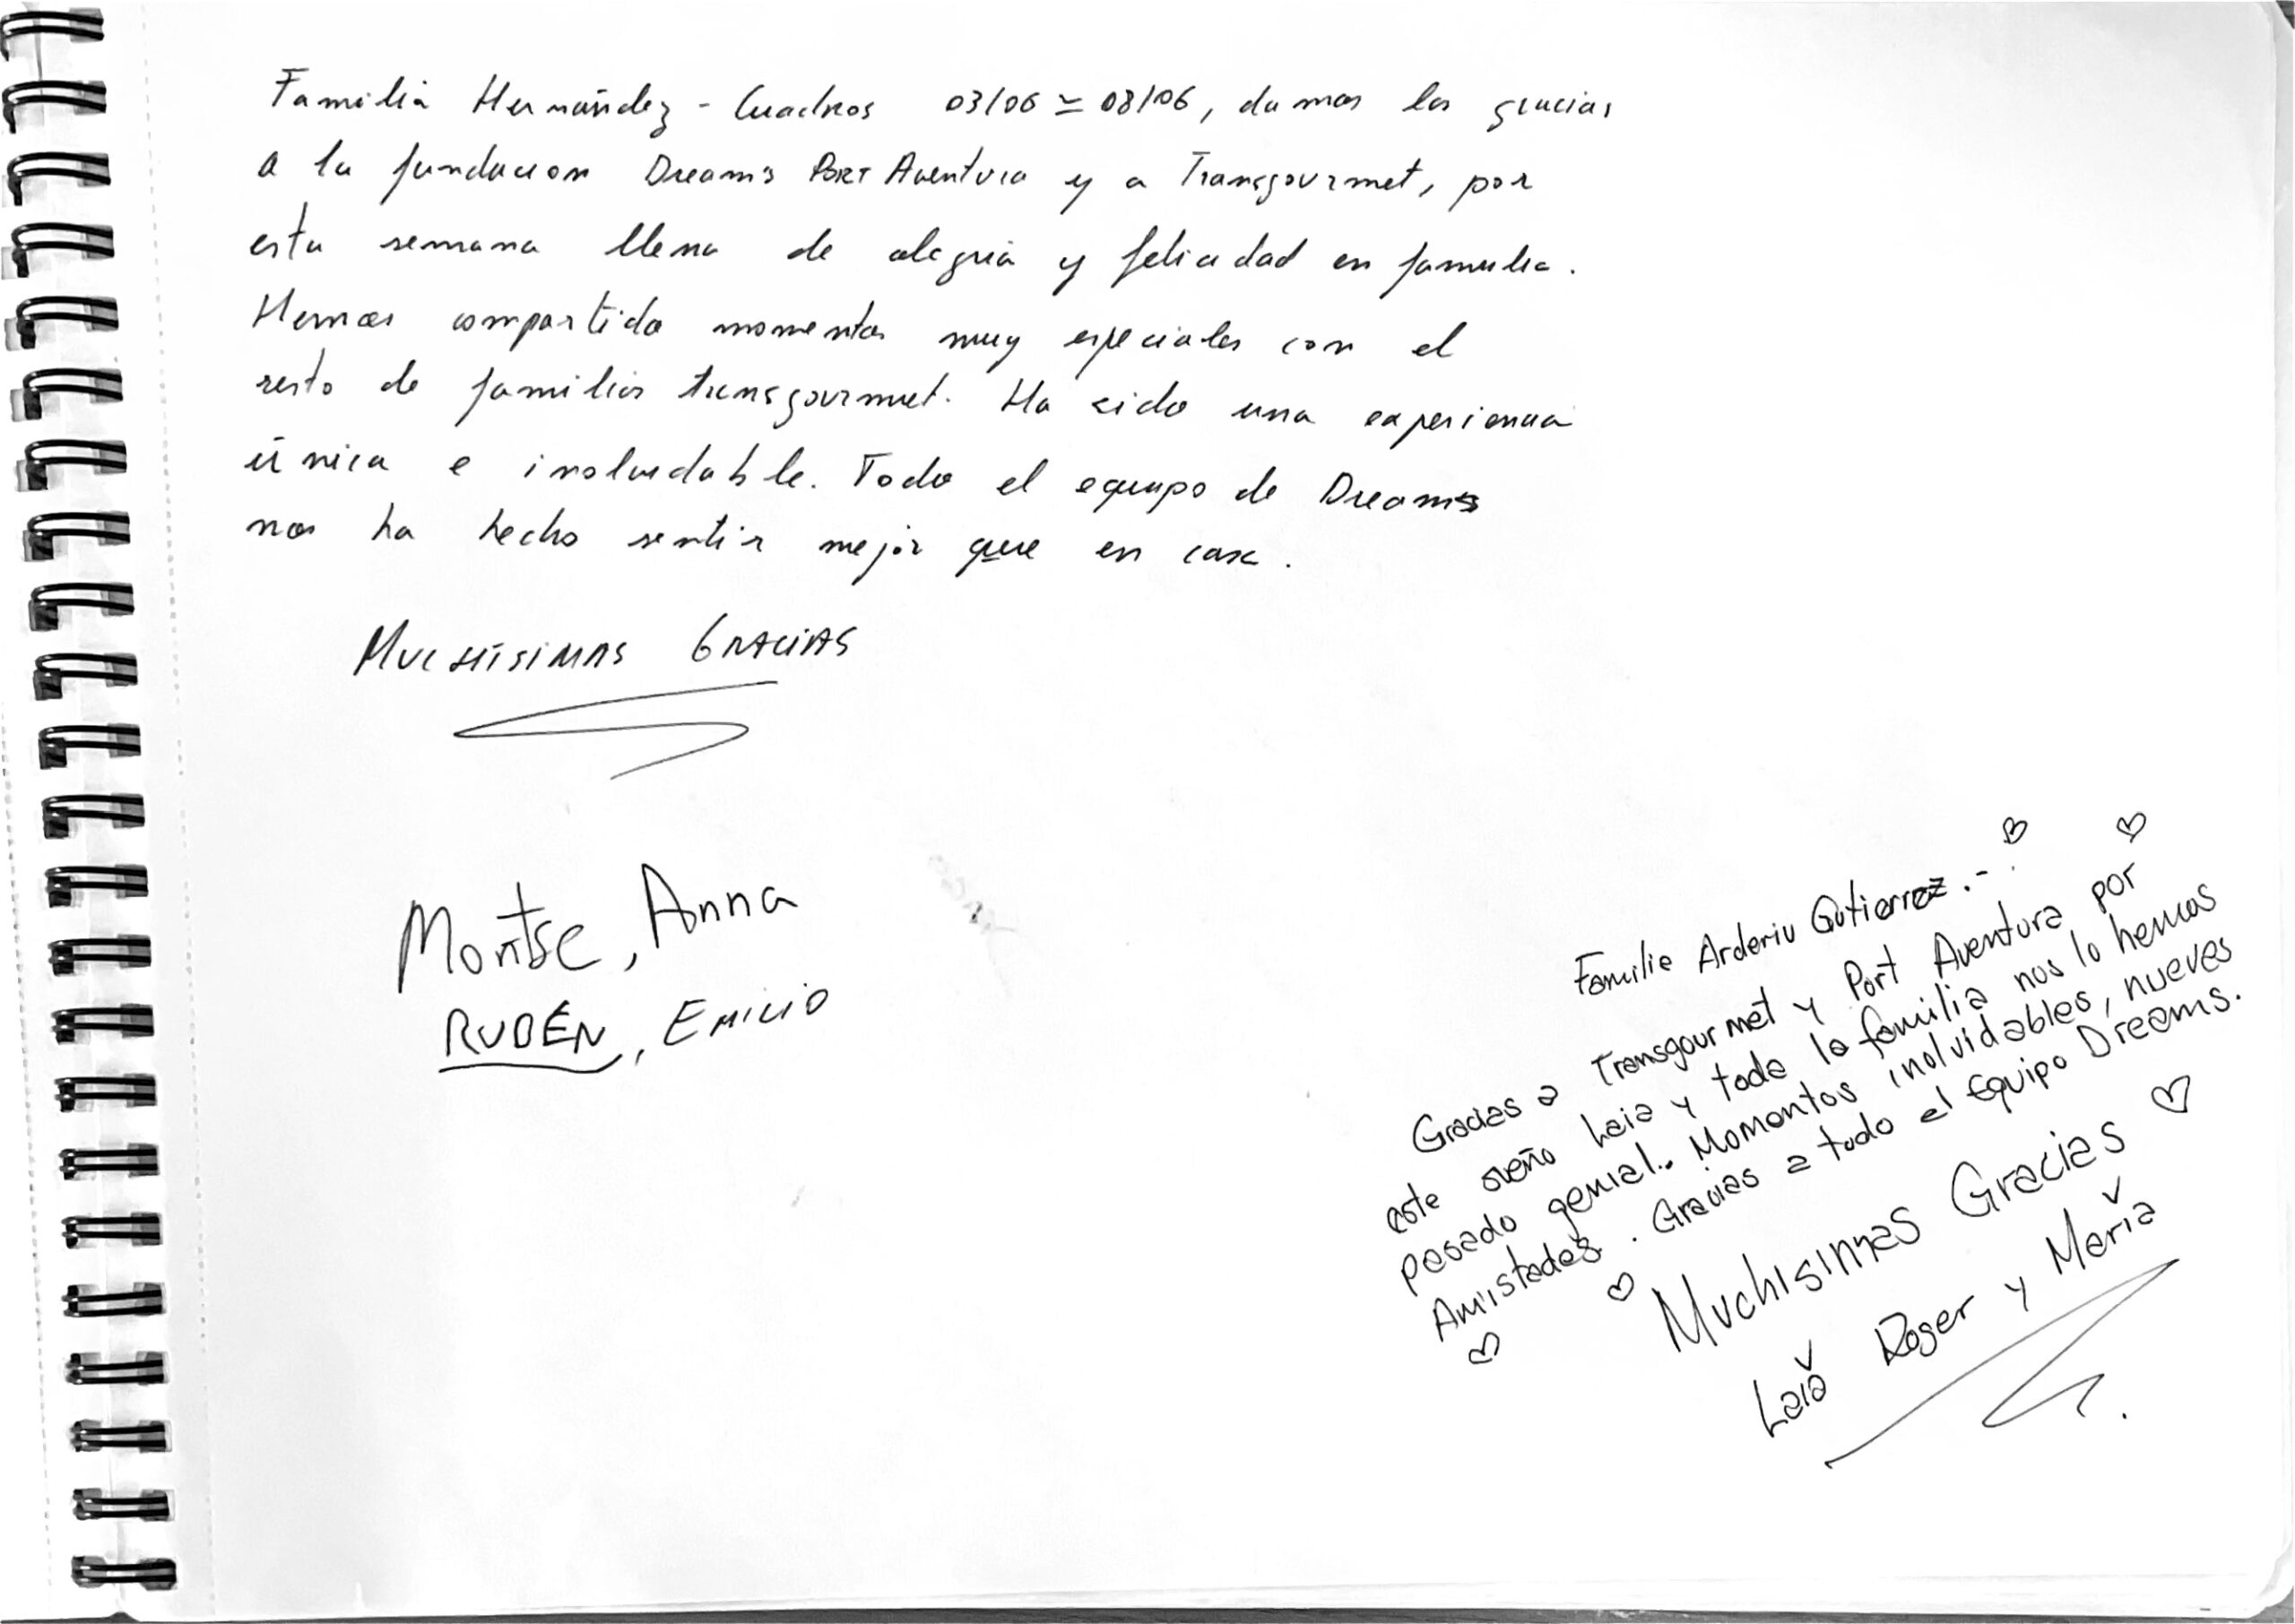 Familia Hernández - Cuadros 03/06 ≃ 08/06, damos las gracias
a la fundacion Dreams PORT Aventura y a Transgourmet, por
esta semana llena de alegria y felicidad en familia.
Hemos compartido momentos muy especiales con el
resto de familias transgourmet. Ha sido una experiencia
única e inolvidable. Todo el equipo de Dreams
nos ha hecho sentir mejor que en casa.
MUCHÍSIMAS GRACIAS
Montse, Anna
RUBÉN, EMILIO
Familia Arderiu Gutierrez.-
Gracias a Transgourmet y Port Aventura por
este sueño Laia y toda la familia nos lo hemos
pasado genial.. Momentos inolvidables, nuevas
Amistades. Gracias a todo el Equipo Dreams.
Muchisimas Gracias
Laia Roger y Maria